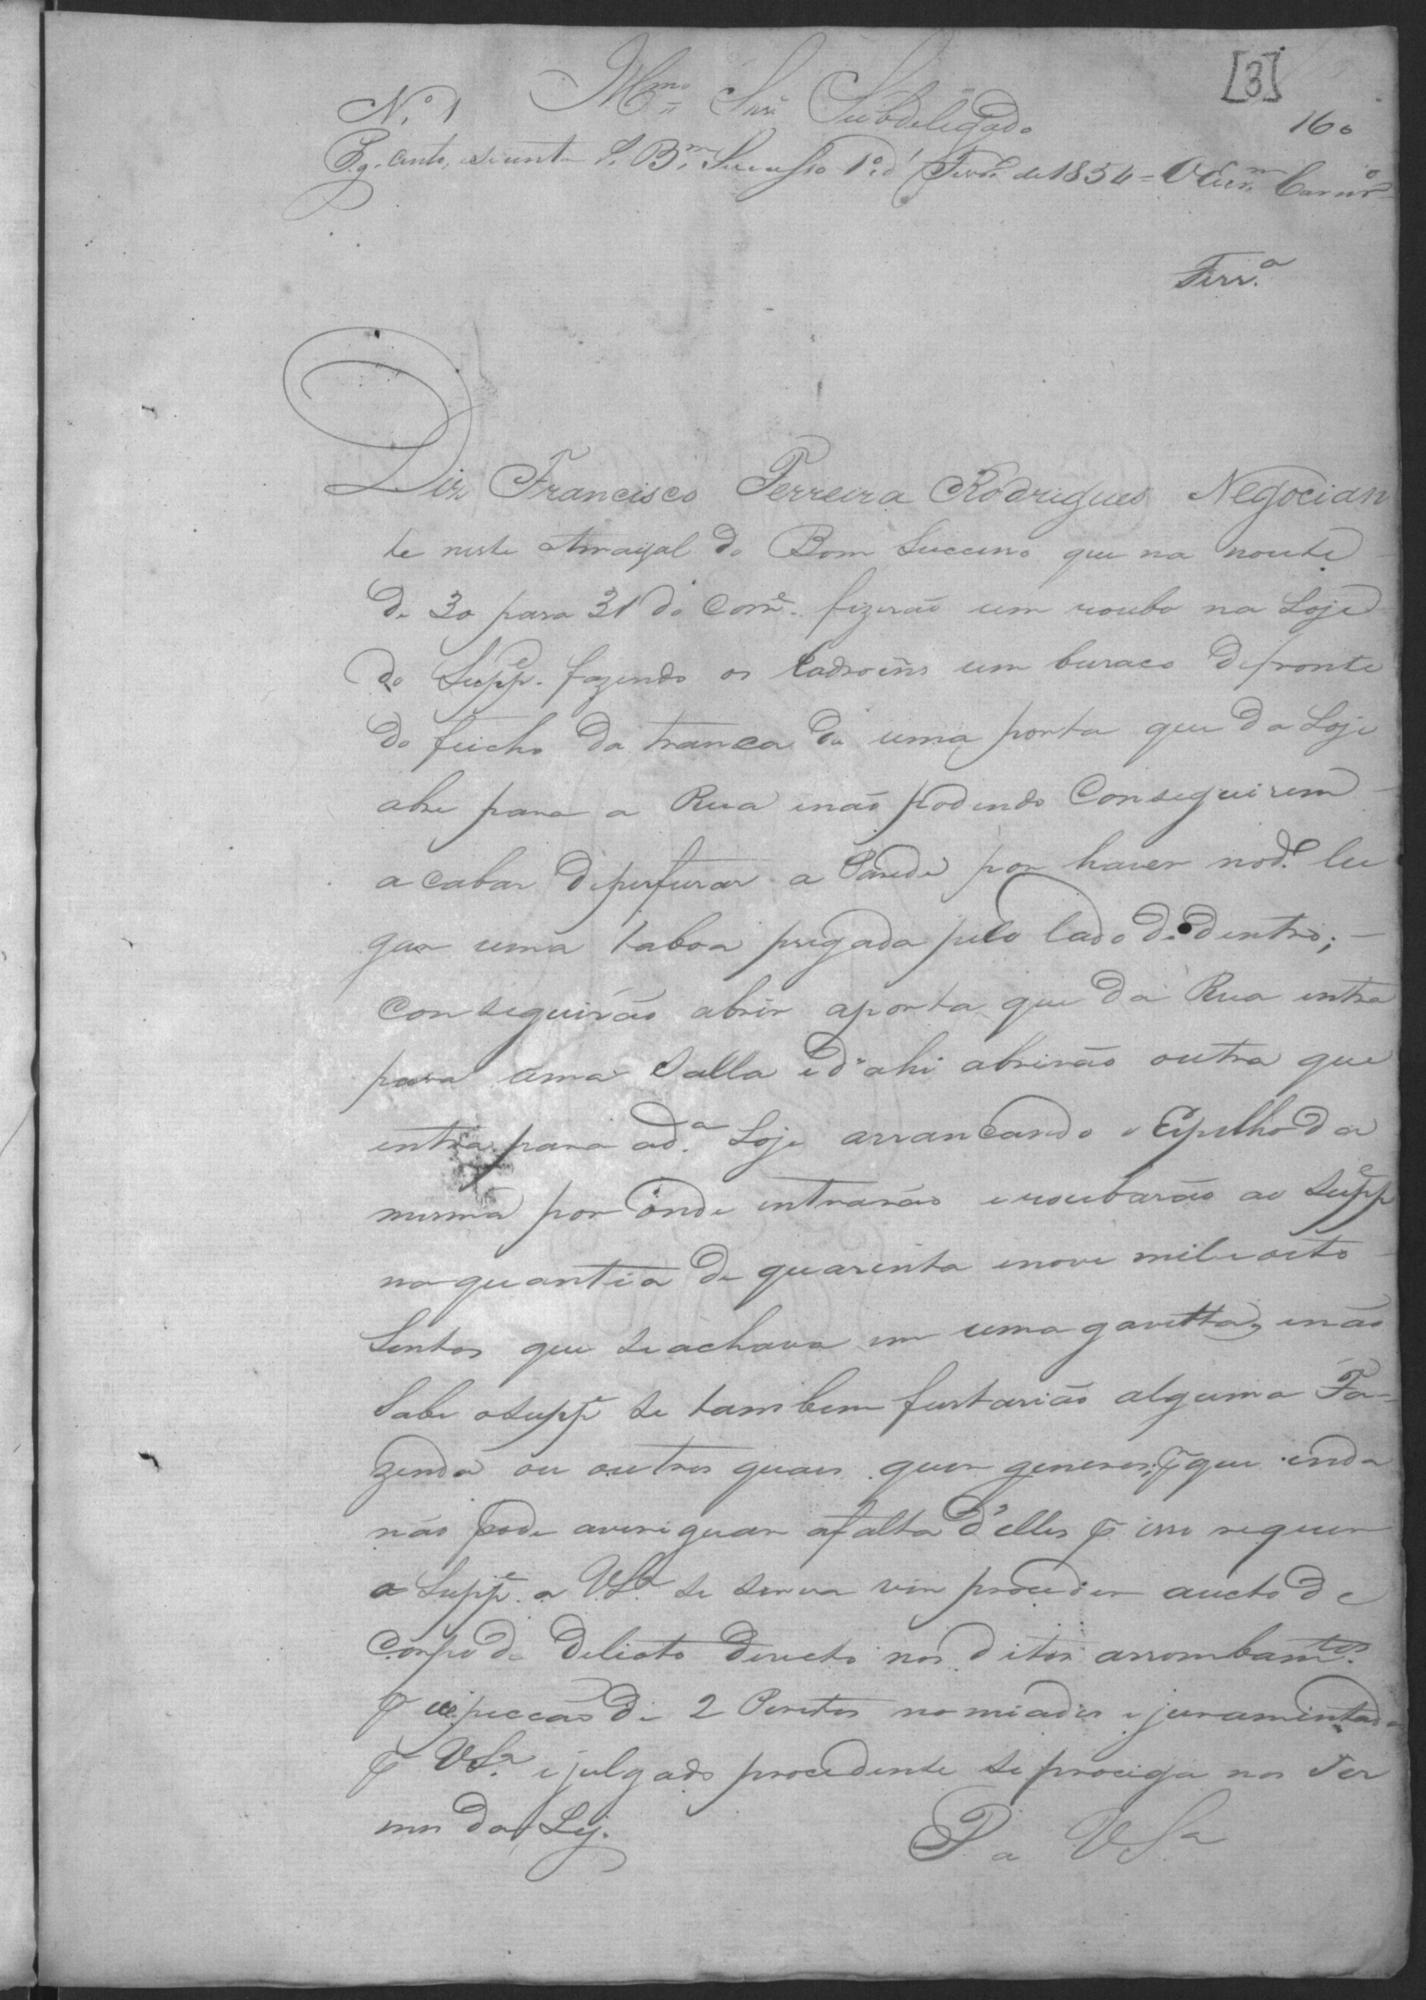 [3]
Illmo Snr Subdelegado
N.º 1
160
Pg. cento, esecenta rs. Bm. Sucesso 1º d' Fevrº. de 1854 = O Escm. Carnrº
Ferr.ª
Diz Francisco Ferreira Rodrigues Negocian
te neste Arrayal do Bom Sucesso que na noute
de 30 para 31 do Corre. fizerão um roubo na Loje
do Suppe. fazendo os Ladroens um buraco defronte
do feicho da tranca de uma porta que da Loje
abre para a Rua enão podendo Conseguirem
acabar deperfurar a Parede por haver nod.º lu
gar uma taboa pregada pelo lado de dentro;
Conseguirão abrir aporta que da Rua entra
para uma Salla ed'ahi abrirão outra que
entra para ad.ª Loje arrancando o Espelho da
mesma por onde entrarão eroubarão ao Suppe
naquantia de quarenta enove mil eoito
Sentos que se achava em uma gavetta, enão
Sabe oSuppe se tambem furtarião alguma Fa-
zenda ou outros quaes quer generos, pr que inda
não pode averiguar afalta d'elles pr isso requer
o Suppe. a V.Sª se serva vir proceder aucto de
Corpo de Delicto directo nos ditos arrombamtos.
pr inspeccão de 2 Peritos nomiados ejuramentados
pr V.Sª. ejulgado procedente se prociga nos Ter
mos da Ley.
P a V.Sª